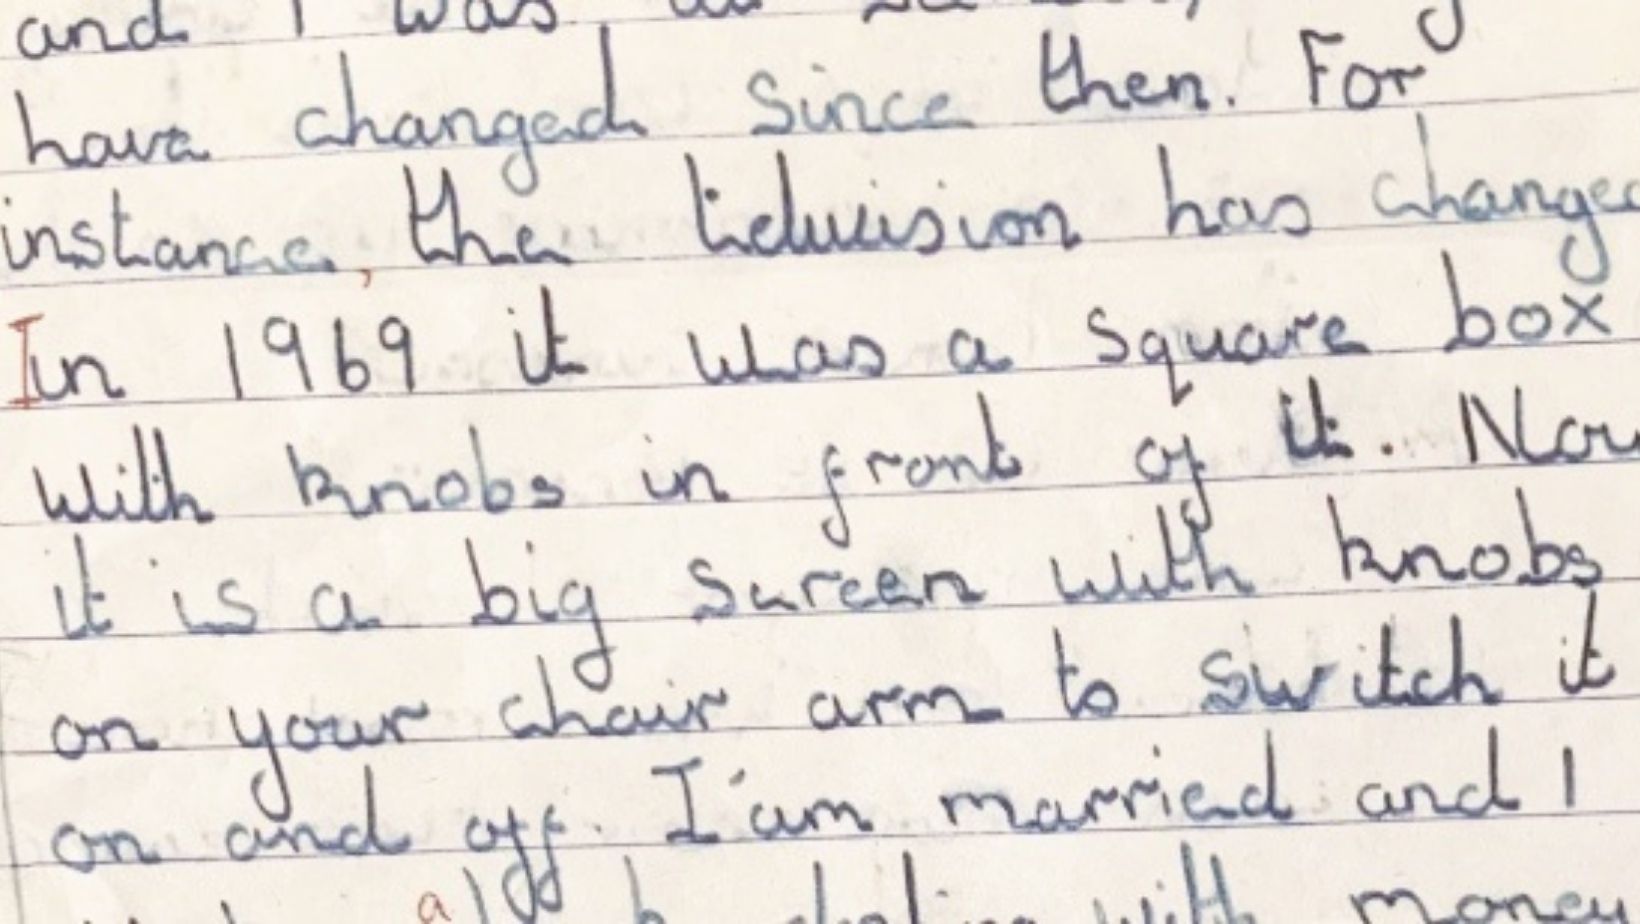 and I was at
have changed since then. For
instance, the television has changed
In 1969 it was a square box
with knobs in front of it. Now
it is a big screen with knobs
on your chair arm to switch it
on and off. I'am married and I
a with money